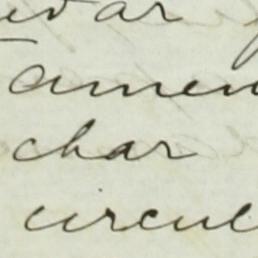 evar
amen
char
circul